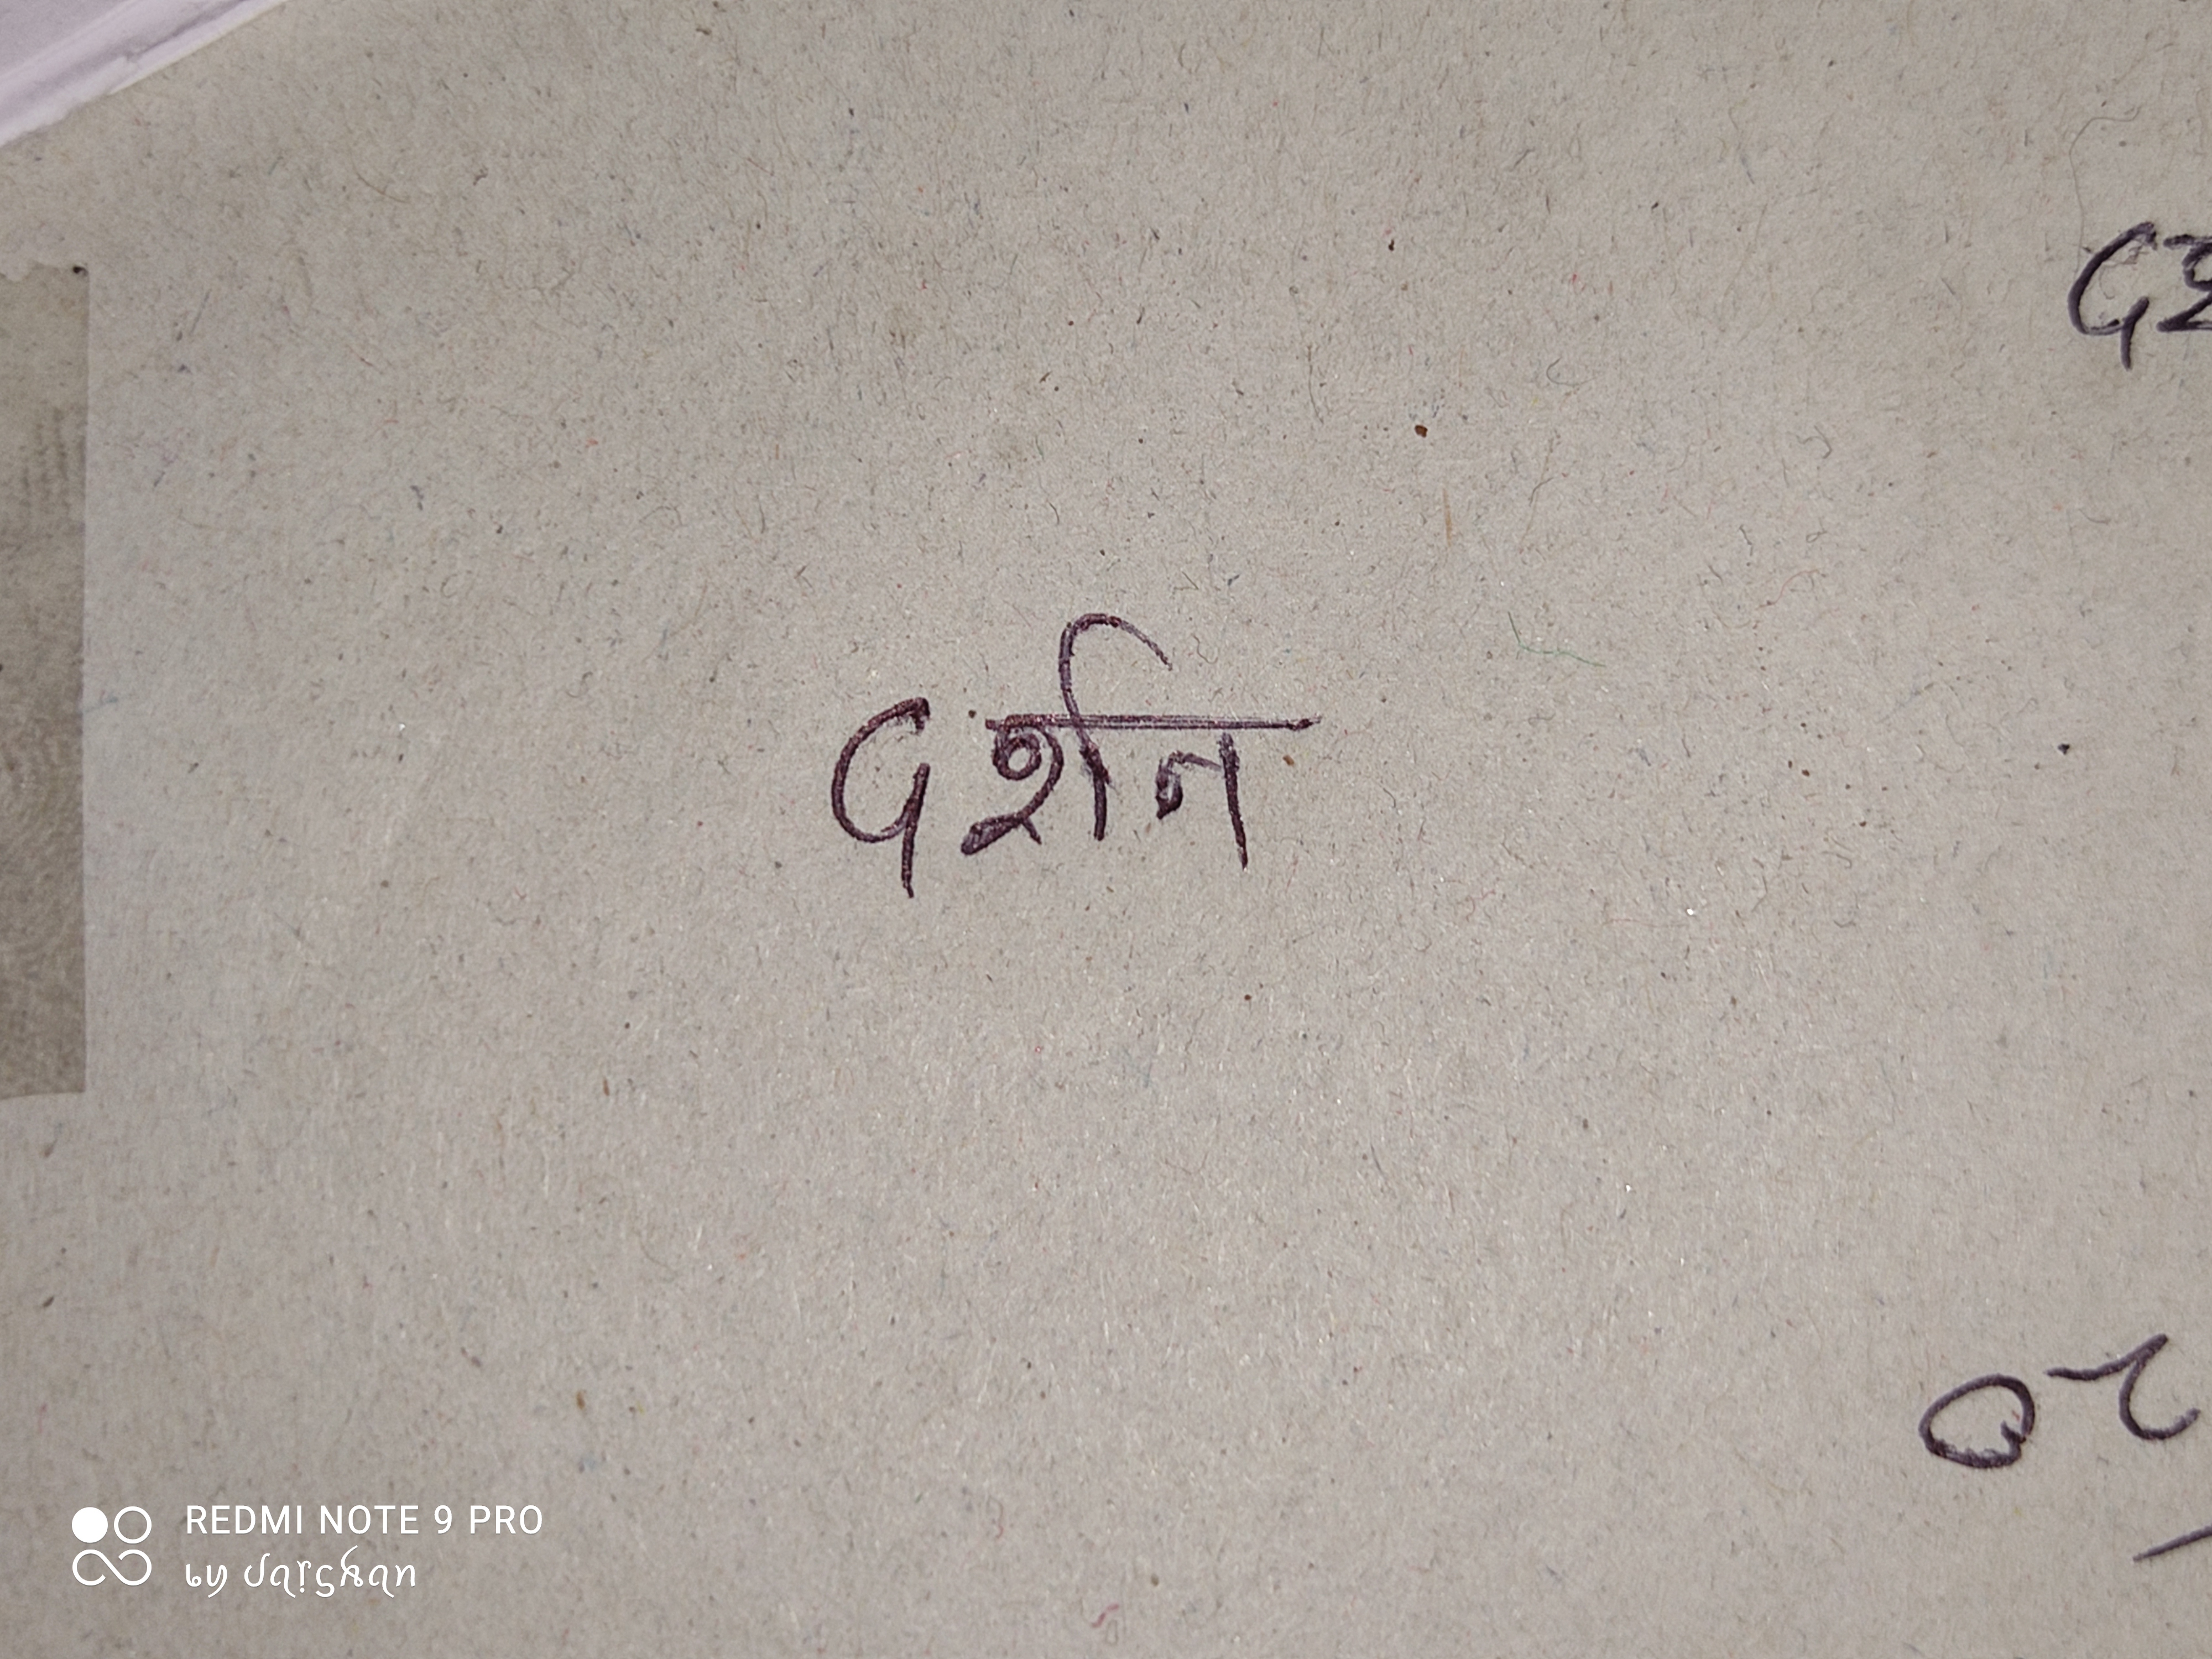 दर्शन
REDMI NOTE 9 PRO
by darshan